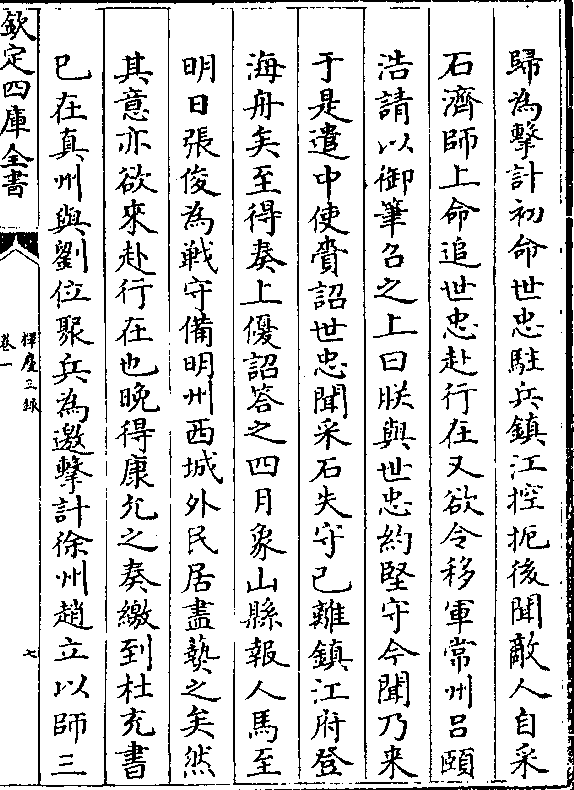 歸為擊計初命世忠駐兵鎮江控扼後聞敵人自采
石濟師上命追世忠赴行在又欲令移軍常州吕頤
浩請以御筆召之上曰朕與世忠約堅守今聞乃来
于是遣中使賫詔世忠聞采石失守已離鎮江府登
海舟矣至得奏上優詔答之四月象山縣報人馬至
明日張俊為戰守備明州西城外民居盡爇之矣然
其意亦欲來赴行在也晚得康允之奏繳到杜充書
已在真州與劉位聚兵為邀擊計徐州趙立以師三
欽定四庫全書
揮麈三録
卷一
七